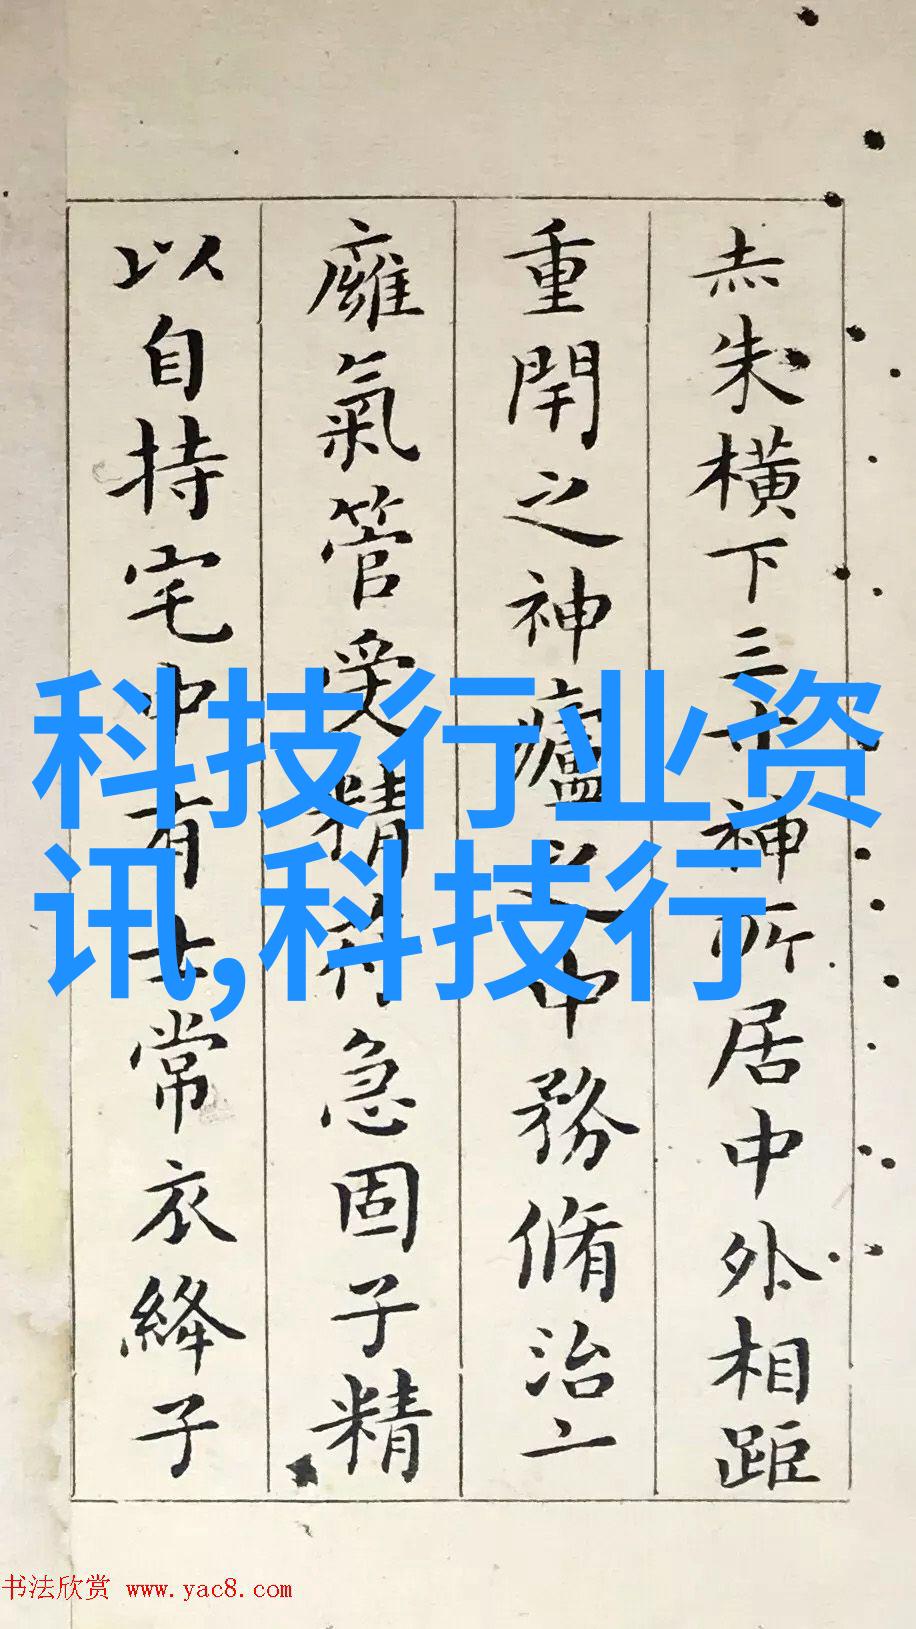 赤朱横下三寸神所居中外相距
重閉之神廬之中務脩治亠
廱氣管受精符急固子精
以自持宅中有士常衣絳子
科技行业资
讯,科技行
书法欣赏 www.yac8.com